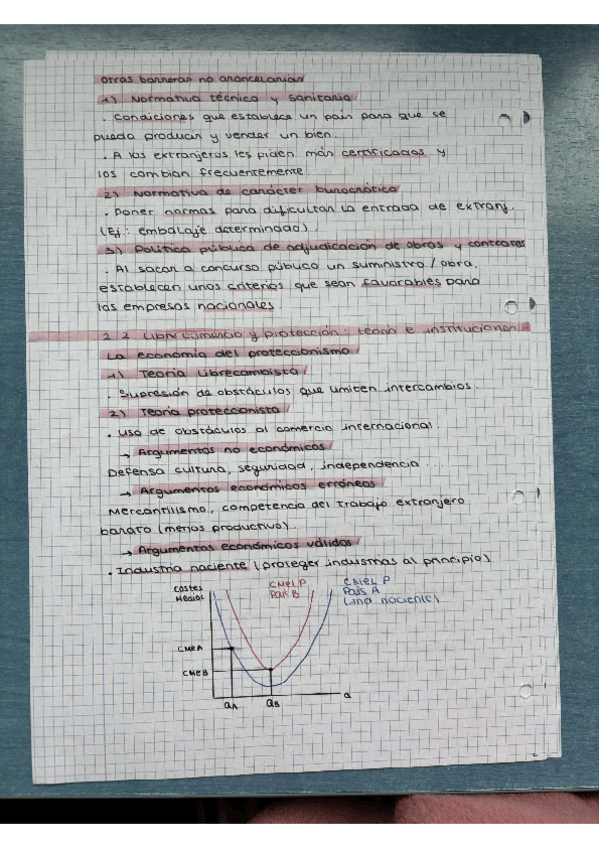 Otras barreras no arancelarias
1) Normativa técnica y sanitaria
. Condiciones que establece un país para que se
pueda producir y vender un bien.
. A los extranjeros les piden más certificados y
los cambian frecuentemente.
2) Normativa de carácter burocrático
. Poner normas para dificultar la entrada de extranj.
(Ej: embalaje determinado)
3) Política pública de adjudicación de obras y contratos
. Al sacar a concurso público un suministro / obra,
establecen unos criterios que sean favorables para
las empresas nacionales
2.2 Librecomercio y protección: teoría e instituciones
La economía del proteccionismo
1) Teoría Librecambista
. Supresión de obstáculos que limiten intercambios.
2) Teoría proteccionista
. Uso de obstáculos al comercio internacional.
→ Argumentos no económicos
Defensa cultura, seguridad, independencia ...
→ Argumentos económicos erróneos
Mercantilismo, competencia del trabajo extranjero
barato (menos productivo).
→ Argumentos económicos válidos
. Industria naciente (proteger industrias al principio)
Costes
Medios
CMeLP
País B
CMeLP
País A
(ind naciente)
CMeA
CMeB
QA
QB
Q